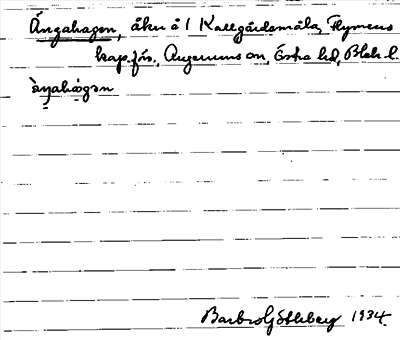 Ängahagen, åker å 1 Kallgårdsmåla, Flymens
kap.förs., Augerums sn, Östra hd, Blek. l.
àŋahàgən
Barbro Göthberg 1934.